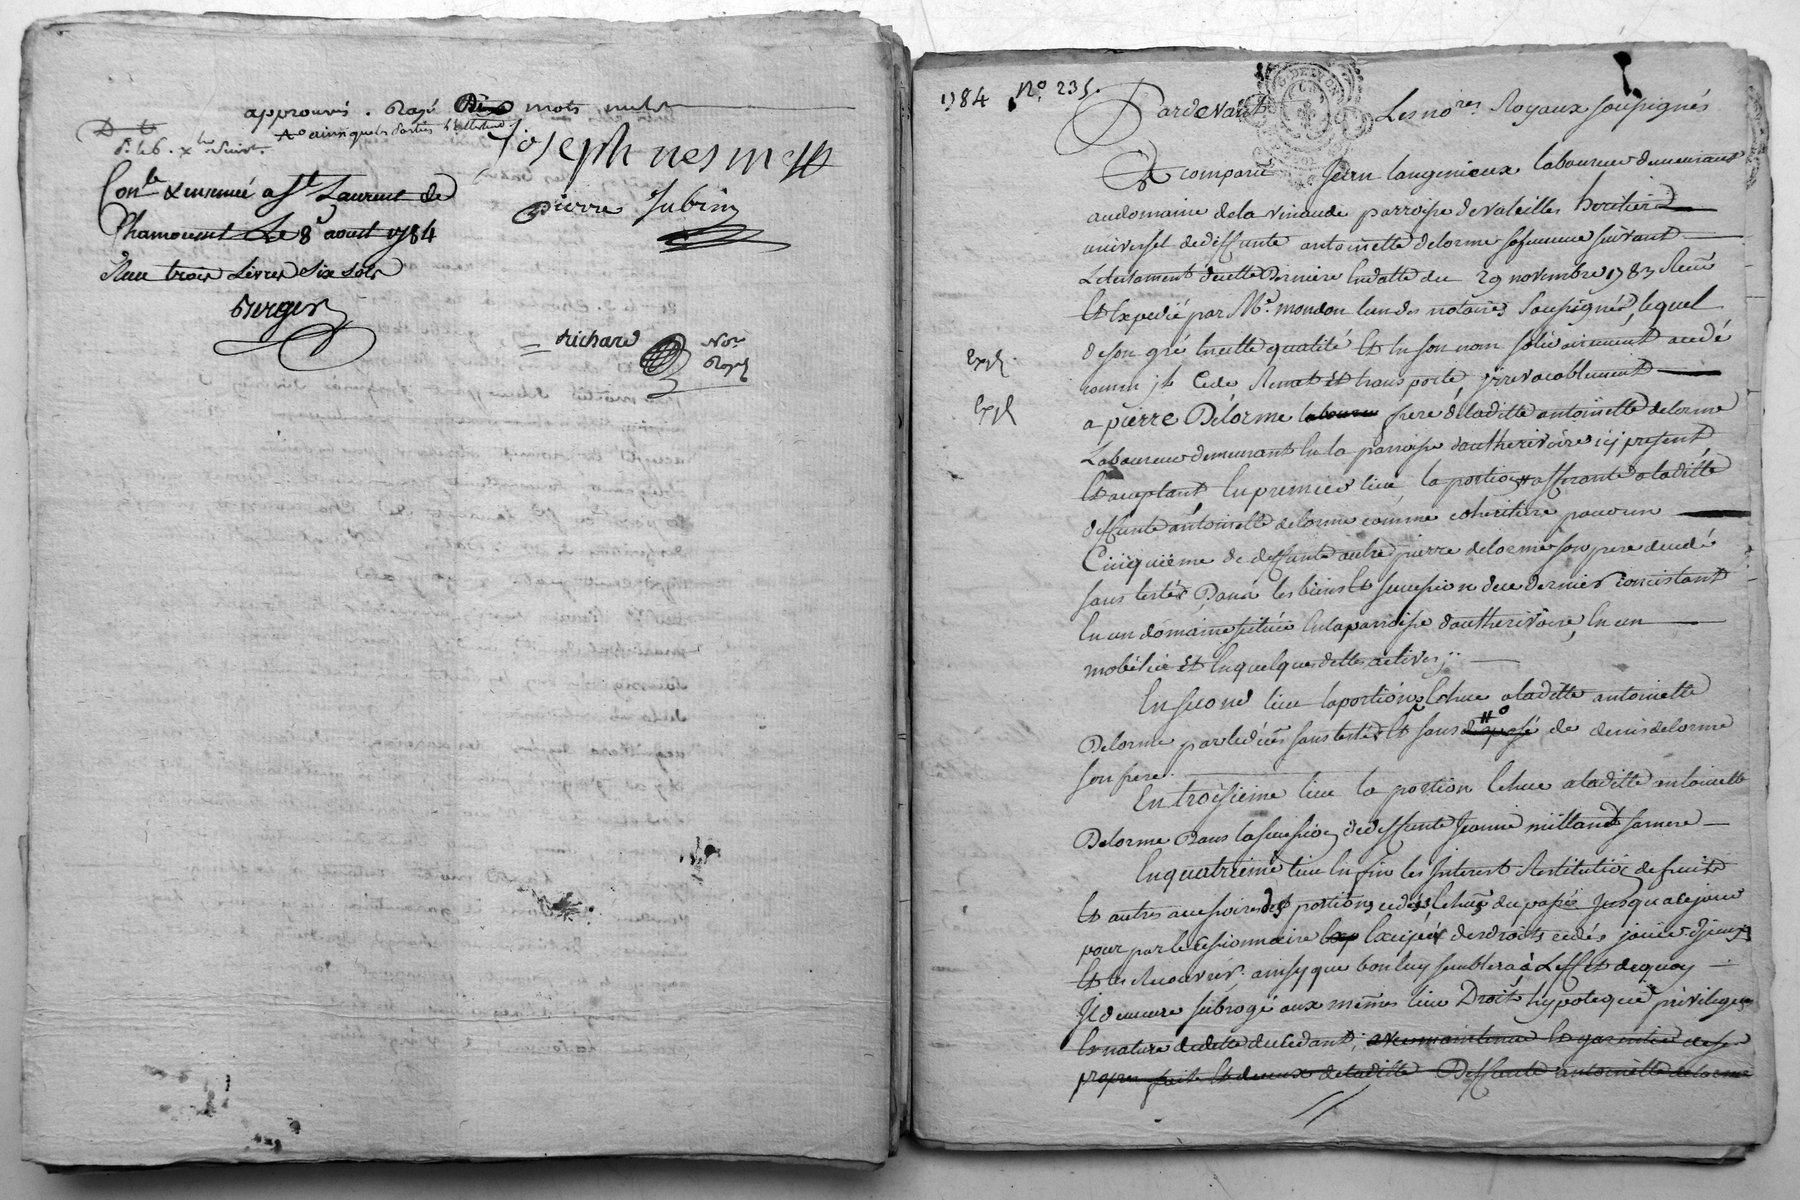 approuvé. Rayé Dix mots nuls
Joseph nesme
pierre Jubin
Conlé & insinué a St Laurent de
Chamousset Le 8e aoust 1784
Reçu trois Livres Six sols
Berger
richard Nore
Royal
1784 No. 235.
Pardevant Les nores Royaux soussignés
A comparu Jean Laugenieux laboureur demeurant
au domaine dela vinaude parroisse de valeilles heritier
universel de deffunte antoinette delorme sa femme suivant
Le testament de cette Derniere En datte du 29 novembre 1783 Reçu
Et Expedié par Me. mondon l'un des notaires soussignés, lequel
de son gré En cette qualité Et En son nom solidairement a cedé
comm'il Cede Remet Et transporte, irrevocablement
a pierre Delorme laboureur frere de laditte antoinette delorme
Laboureur demeurant En la parroisse d'autherivoire ici present
Et acceptant, En premier lieu, la portion afferante a laditte
deffunte antoinette delorme comme coheritiere pour un
Cinquième de deffunt autre pierre delorme son pere decedé
sans tester Dans les biens Et succession de ce dernier consistant
En un domaine situé En la parroisse d'autherivoire, En un
mobilier Et En quelques dettes actives;
En second lieu la portion Echue a laditte antoinette
Delorme par le décès sans tester Et sans de denis delorme
son frere.
En troisieme lieu la portion Echue a laditte antoinette
Delorme Dans la succession de deffunte Jeanne milland sa mere
En quatrieme lieu Enfin les Interest Restitution de fruits
Et autres accessoires des portions cedées Echus du passé jusqu'a ce jour
pour par le cessionnaire Exciper des droits cedés jouir d'jceux
Et les Recouvrer ainsy que bon luy semblera à L'effet de quoy
Il demeure subrogé aux mêmes lieu Droit hypoteque privileges
Et nature de dette du cedant, avec maintenue Et garentie de ses
propres faits Et de ceux de laditte Deffunte antoinette delorme